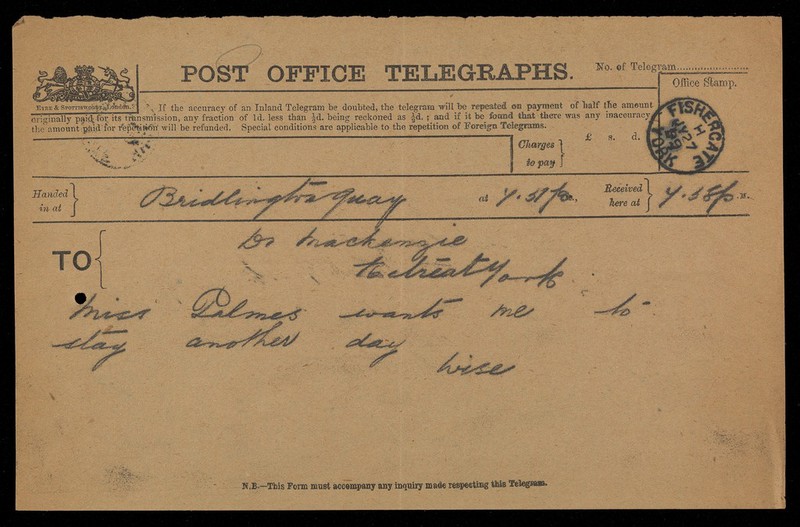 POST OFFICE TELEGRAPHS.
No. of Telegram
Office Stamp.
If the accuracy of an Inland Telegram be doubted, the telegram will be repeated on payment of half the amount
originally paid for its transmission, any fraction of 1d. less than ½d. being reckoned as ½d.; and if it be found that there was any inaccuracy,
the amount paid for repetition will be refunded. Special conditions are applicable to the repetition of Foreign Telegrams.
FISHERGATE
YORK
H
27
Charges to pay
£ s. d.
Handed in at
Bridlington Quay
at
Received here at
M.
TO
Dr Mackenzie
Retreat York
Miss Palmes wants me to
stay another day
Wise
N.B.—This Form must accompany any inquiry made respecting this Telegram.